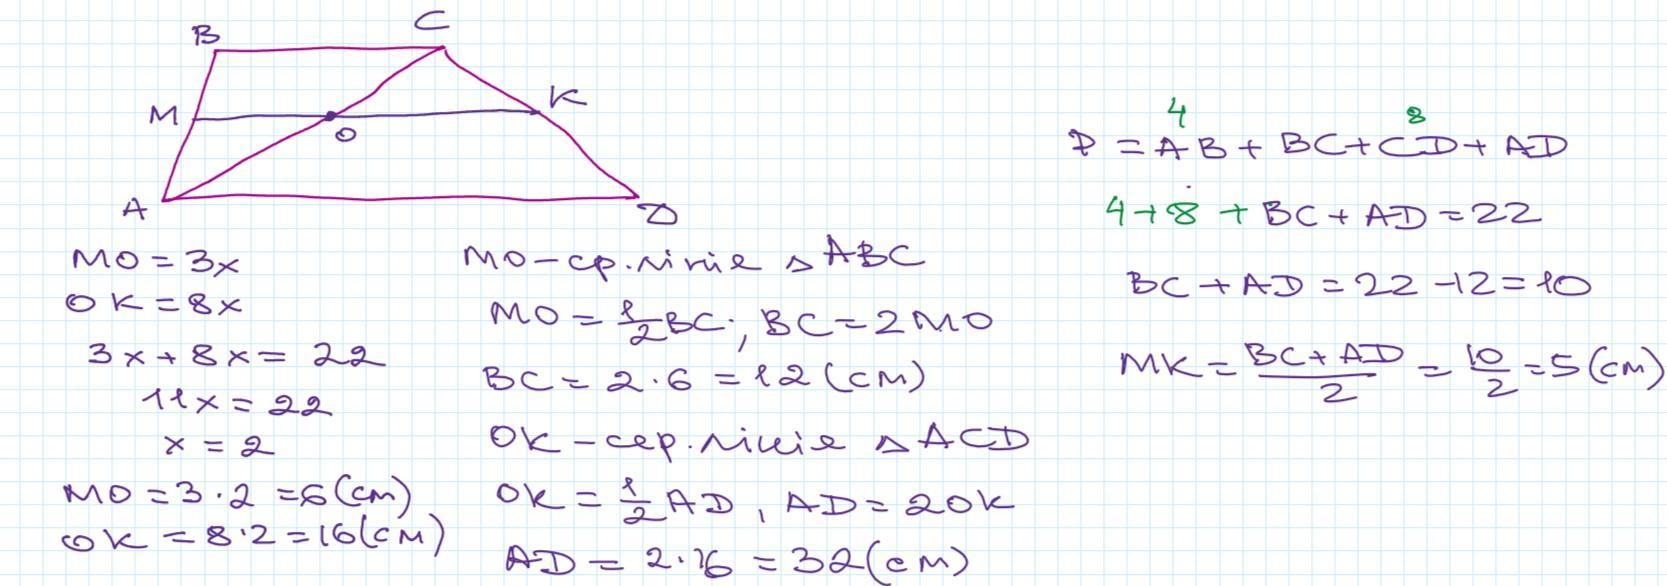 B
C
M
K
O
A
D
MO = 3x
OK = 8x
3x + 8x = 22
11x = 22
x = 2
MO = 3 · 2 = 6 (см)
OK = 8 · 2 = 16 (см)
MO – ср. лінія △ ABC
MO = 1/2 BC; BC = 2MO
BC = 2 · 6 = 12 (см)
OK – сер. лінія △ ACD
OK = 1/2 AD, AD = 2OK
AD = 2 · 16 = 32 (см)
4 8
P = AB + BC + CD + AD
4 + 8 + BC + AD = 22
BC + AD = 22 – 12 = 10
MK = (BC + AD)/2 = 10/2 = 5 (см)